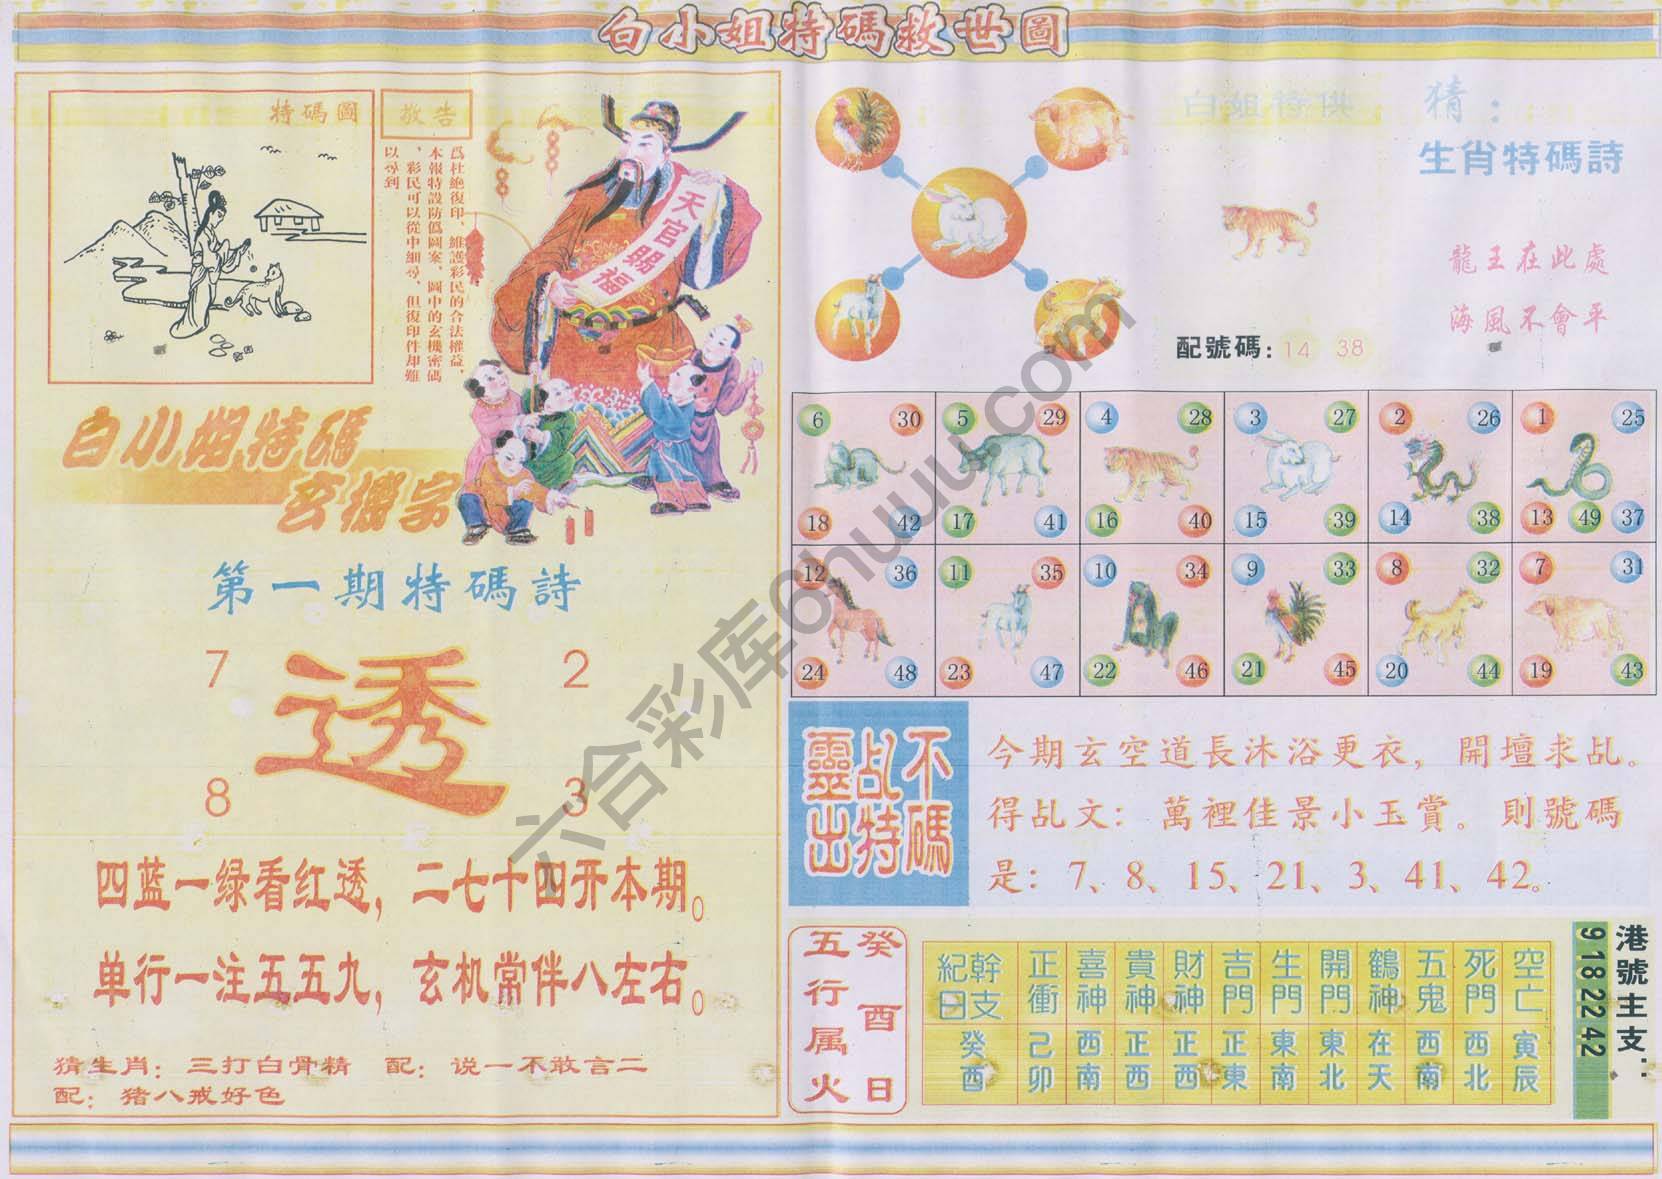 白小姐特碼救世圖
特碼圖
敬告
爲杜絶復印、維護彩民的合法權益，
本報特設防僞圖案、圖中的玄機密碼
，彩民可以從中細尋、但復印件却難
以尋到
天官賜福
白小姐特碼
玄機字
第一期特碼詩
7 2
透
8 3
四蓝一绿看红透，二七十四开本期。
单行一注五五九，玄机常伴八左右。
猜生肖：三打白骨精 配：说一不敢言二
配：猪八戒好色
白姐特供
配號碼：14 38
猜：
生肖特碼詩
龍王在此處
海風不會平
6 30 5 29 4 28 3 27 2 26 1 25
18 42 17 41 16 40 15 39 14 38 13 49 37
12 36 11 35 10 34 9 33 8 32 7 31
24 48 23 47 22 46 21 45 20 44 19 43
不碼
乩特
靈出
今期玄空道長沐浴更衣，開壇求乩。
得乩文：萬裡佳景小玉賞。則號碼
是：7、8、15、21、3、41、42。
癸酉日
五行属火
紀日 幹支 正衝 喜神 貴神 財神 吉門 生門 開門 鶴神 五鬼 死門 空亡
癸酉 己卯 西南 正西 正西 正東 東南 東北 在天 西南 西北 寅辰
港號主支：
9 18 22 42
六合彩库6huuu.com